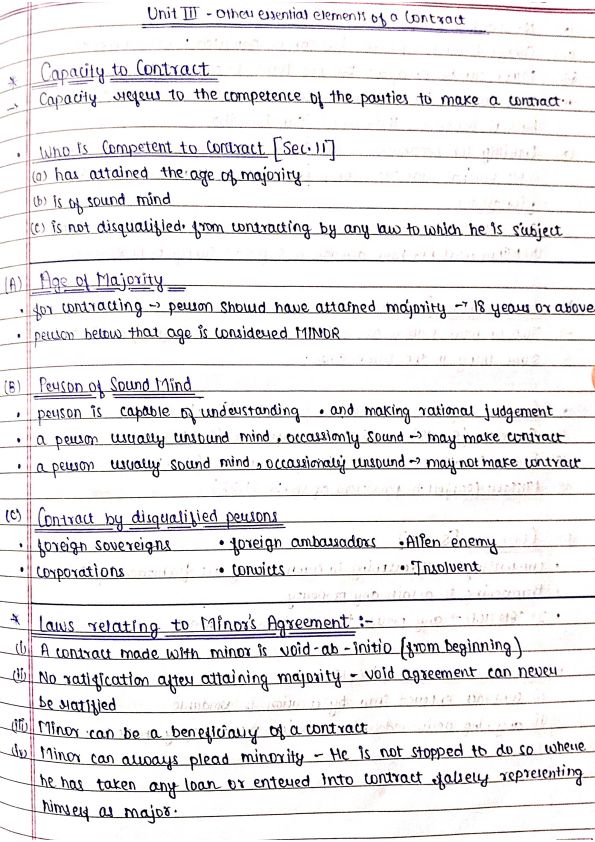 Unit III - Other essential elements of a Contract
* Capacity to Contract
→ Capacity refers to the competence of the parties to make a contract.
• Who is Competent to Contract [Sec. 11]
(a) has attained the age of majority
(b) is of sound mind
(c) is not disqualified from contracting by any law to which he is subject
(A) Age of Majority
• for contracting → person should have attained majority → 18 years or above
• person below that age is considered MINOR
(B) Person of Sound Mind
• person is capable of understanding • and making rational judgement
• a person usually unsound mind, occassionly sound → may make contract
• a person usually sound mind, occassionaly unsound → may not make contract
(C) Contract by disqualified persons
• foreign sovereigns • foreign ambassadors • Alien enemy
• corporations • convicts • Insolvent
* Laws relating to Minor's Agreement :-
(i) A contract made with minor is void-ab-initio (from beginning)
(ii) No ratification after attaining majority - void agreement can never
be ratified
(iii) Minor can be a beneficiary of a contract
(iv) Minor can always plead minority - He is not stopped to do so where
he has taken any loan or entered into contract falsely representing
himself as major.